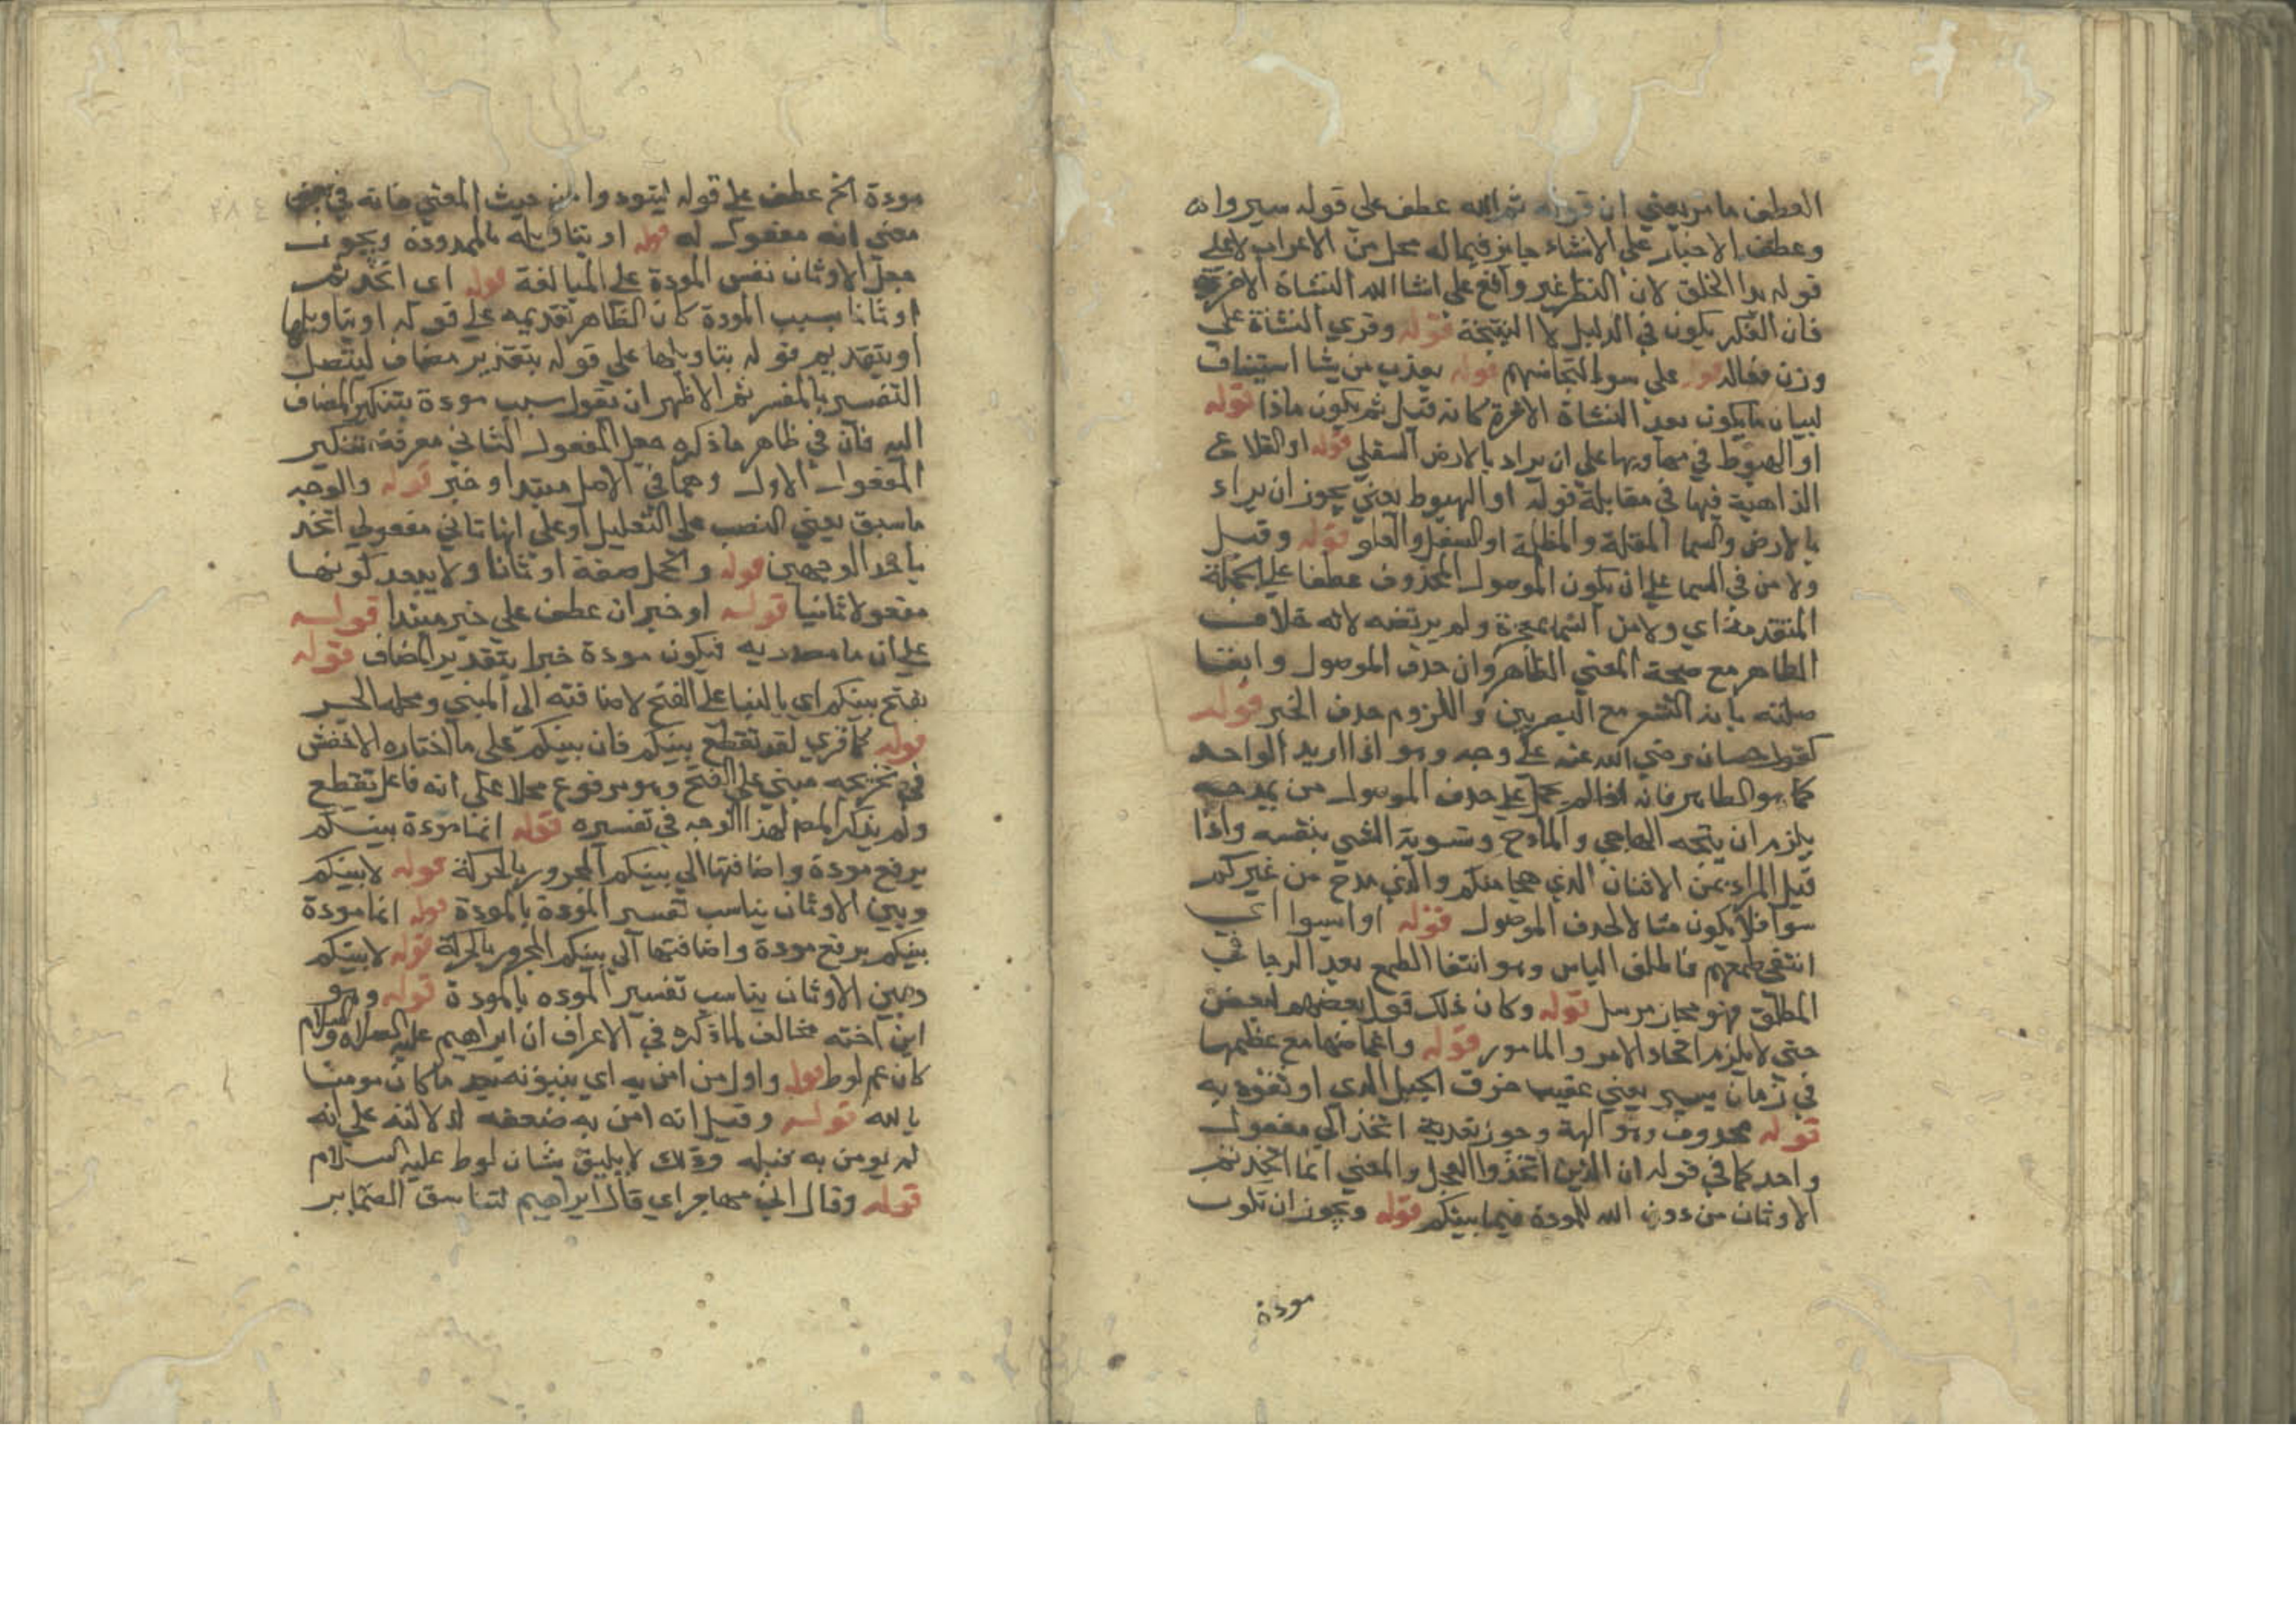 العطف ما مر يعني ان قوله ثم الله عطف علي قوله سيروا وانه
وعطف الاخبار علي الانشاء جايز فيما له محل من الاعراب لا علي
قوله بدا الخلق لان النظر غير واقع علي انشا الله النشاة الاخرة
فان الفكر يكون في الدليل لا النتيجة قوله وقري النشاة علي
وزن فعاله قوله علي سوا التجا ضهم قوله يعذب من يشا استيناف
لبيان ما يكون بعد النشاة الاخرة كانه قيل ثم يكون ماذا قوله
او الهبوط في مهاويها علي ان يراد بالارض السفلي قوله او القلاع
الذاهبة فيها في مقابلة قوله او الهبوط يعني يجوز ان يراد
بالارض والسما المقلة والمظلة او السفل والعلو قوله وقيل
ولا من في السما علي ان يكون الموصول المحذوف عطفا علي الجملة
المتقدمة اي ولا من السما بمعجزة ولم يرتضه لانه خلاف
الظاهر مع صحة المعني الظاهر وان حذف الموصول وابقا
صلته بابه الشعر مع البصريين واللزوم حذف الخبر قوله
كقول حسان رضي الله عنه علي وجه وهو اذا اريد الواحد
كما هو الظاهر فانه اذا لم يحمل علي حذف الموصول من يمدحه
يلزم ان يتجه الهاجي والمادح وتسوية الشي بنفسه واذا
قيل المراد بمن الاثنان الذي هجا منكم والذي مدح من غيركم
سوا فلا يكون مثالا لحذف الموصول قوله او ايسوا اي
انتفي طمعهم فاطلق الياس وهو انتفا الطمع بعد الرجا في
المطلق فهو مجاز مرسل قوله وكان ذلك قول بعضهم لبعض
حتي لا يلزم اتحاد الامر والمامور قوله واخماضها مع عظيمها
في زمان يسير يعني عقيب حرق الحبل الذي اوثقوه به
قوله محذوف وهو الهة وجوز تعدية اتخذ الي مفعول
واحد كما في قوله ان الذين اتخذوا العجل والمعني انما اتخذتم
الاوثان من دون الله للمودة فيما بينكم قوله ويجوز ان تكون
مودة
مودة الخ عطف علي قوله ليتودوا من حيث المعني فانه في
معني انه مفعول له قوله او بتاويله بالمودودة ويجوز
جعل الاوثان نفس المودة علي المبالغة قوله اي اتخذتم
اوثانا بسبب المودة كان الظاهر تقديمه علي قوله او بتاويلها
او بتقديم قوله بتاويلها علي قوله بتقدير مضاف ليتصل
التفسير بالمفسر ثم الاظهر ان تقول سبب مودة بتنكير المضاف
اليه فان في ظاهر ما ذكره جعل المفعول الثاني معرفة بتنكير
المفعول الاول وهما في الاصل مبتدا وخبر قوله والوجه
ما سبق يعني النصب علي التعليل او علي انها ثاني مفعولي اتخذ
باحد الوجهين قوله والجمل صفة اوثانا ولا يبعد كونها
مفعولا ثانيا قوله او خبر ان عطف علي خبر مبتدا قوله
علي ان ما مصدريه فيكون مودة خبرا بتقدير المضاف قوله
بفتح بينكم اي بالبنا علي الفتح لاضافته الي المبني ومحلها الجر
قوله كما قري لقد تقطع بينكم فان بينكم علي ما اختاره الاخفش
في تخريجه مبني علي الفتح وهو مرفوع محلا علي انه فاعل تقطع
ولم يذكر المص لهذا الوجه في تفسيره قوله انما مودة بينكم
برفع مودة واضافتها الي بينكم المجرور بالحركة قوله لا بينكم
وبين الاوثان يناسب تفسير المودة بالمودة قوله انما مودة
بينكم برفع مودة واضافتها الي بينكم المجرور بالحركة قوله لا بينكم
وبين الاوثان يناسب تفسير الموده بالمودة قوله وهو
ابن اخته مخالف لما ذكره في الاعراف ان ابراهيم عليه الصلاة والسلام
كان عم لوط قوله واول من امن به اي بنبوته بعد ما كان مومنا
بالله قوله وقيل انه امن به ضعفه لدلالته علي انه
لم يومن به قبله وذلك لا يليق بشان لوط عليه السلام
قوله وقال اني مهاجر اي قال ابراهيم لتناسق الضماير